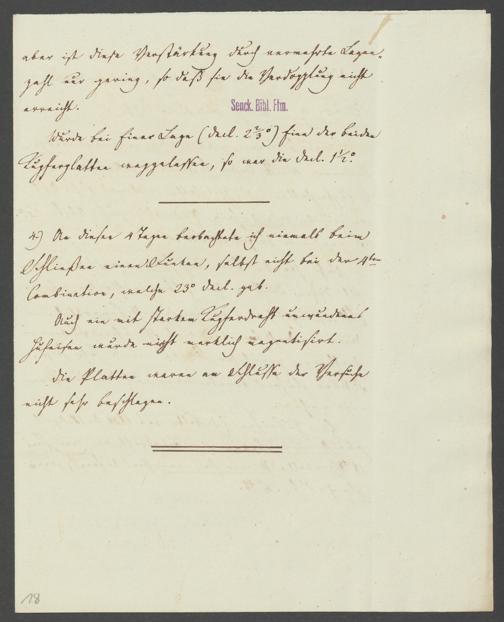 aber ist diese Verstärkung durch vermehrte Lagen-
zahl nur gering, so daß sie die Verdopplung nicht
erreicht.
Senck. Bibl. Ffm.
Wurde bei Einer Lage (decl. 2⅔°) Eine der beiden
Kupferplatten weggelassen, so war die decl. 1½°.
4.) An diesen 4 Tagen beobachtete ich niemals beim
Schließen einen Funken, selbst nicht bei der 4ten
Combination, welche 23° decl. gab.
Auch ein mit starkem Kupferdraht umwundenes
Hufeisen wurde nicht merklich magnetisirt.
Die Platten waren am Schlusse der Versuche
nicht sehr beschlagen.
18